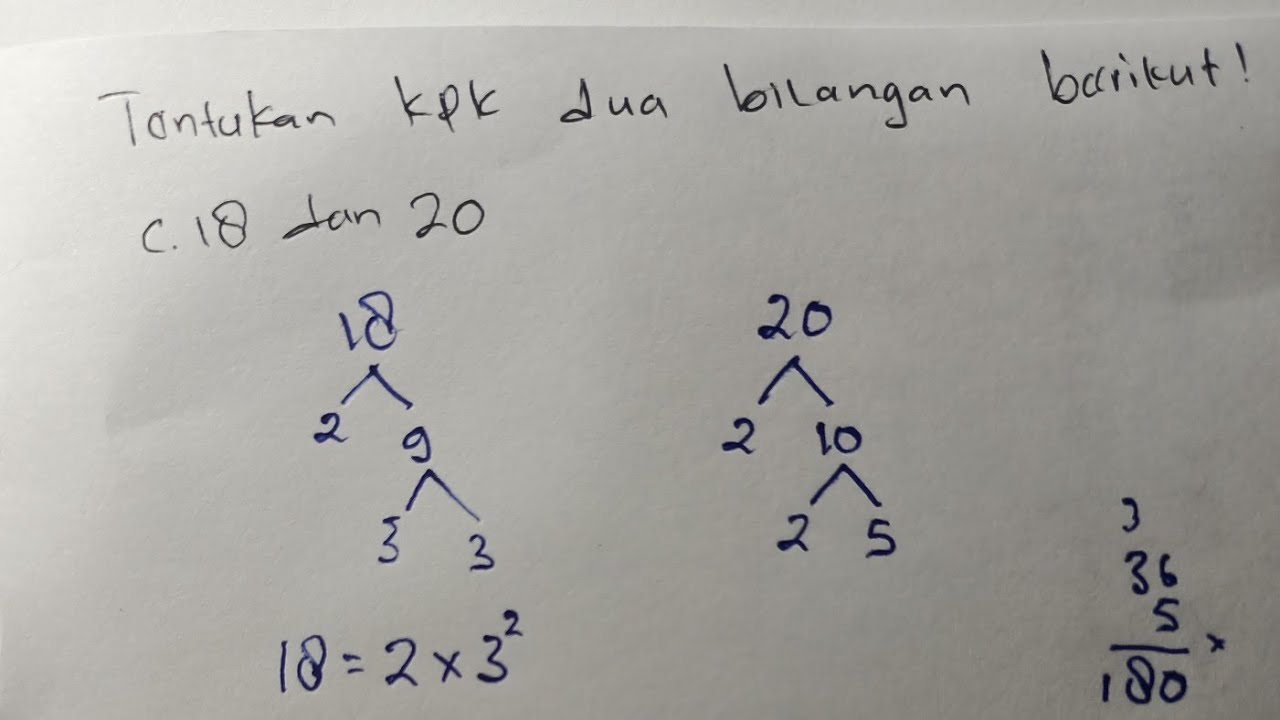 Tentukan KPK dua bilangan berikut!
c. 18 dan 20
18
20
2 9
2 10
3 3
2 5
18 = 2 × 3²
3
36
5
×
180